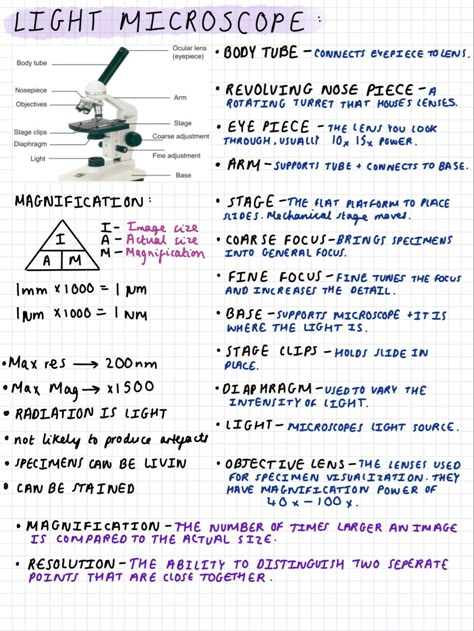 LIGHT MICROSCOPE :
Ocular lens
(eyepiece)
Body tube
Nosepiece
Objectives
Arm
Stage clips
Stage
Diaphragm
Coarse adjustment
Light
Fine adjustment
Base
MAGNIFICATION :
I
A M
I - Image size
A - Actual size
M - Magnification
1mm x1000 = 1 µm
1µm x1000 = 1 NM
• Max res → 200nm
• Max Mag → x1500
• RADIATION IS LIGHT
• not likely to produce artefacts
• SPECIMENS CAN BE LIVIN
• CAN BE STAINED
• BODY TUBE - CONNECTS EYEPIECE TO LENS.
• REVOLVING NOSE PIECE - A
ROTATING TURRET THAT HOUSES LENSES.
• EYE PIECE - THE LENS YOU LOOK
THROUGH, USUALLY 10x 15x POWER.
• ARM - SUPPORTS TUBE + CONNECTS TO BASE.
• STAGE - THE FLAT PLATFORM TO PLACE
SLIDES. Mechanical stage moves.
• COARSE FOCUS - BRINGS SPECIMENS
INTO GENERAL FOCUS.
• FINE FOCUS - FINE TUNES THE FOCUS
AND INCREASES THE DETAIL.
• BASE - SUPPORTS MICROSCOPE + IT IS
WHERE THE LIGHT IS.
• STAGE CLIPS - HOLDS SLIDE IN
PLACE.
• DIAPHRAGM - USED TO VARY THE
INTENSITY OF LIGHT.
• LIGHT - MICROSCOPES LIGHT SOURCE.
• OBJECTIVE LENS - THE LENSES USED
FOR SPECIMEN VISUALIZATION. THEY
HAVE MAGNIFICATION POWER OF
40x - 100x.
• MAGNIFICATION - THE NUMBER OF TIMES LARGER AN IMAGE
IS COMPARED TO THE ACTUAL SIZE.
• RESOLUTION - THE ABILITY TO DISTINGUISH TWO SEPERATE
POINTS THAT ARE CLOSE TOGETHER.